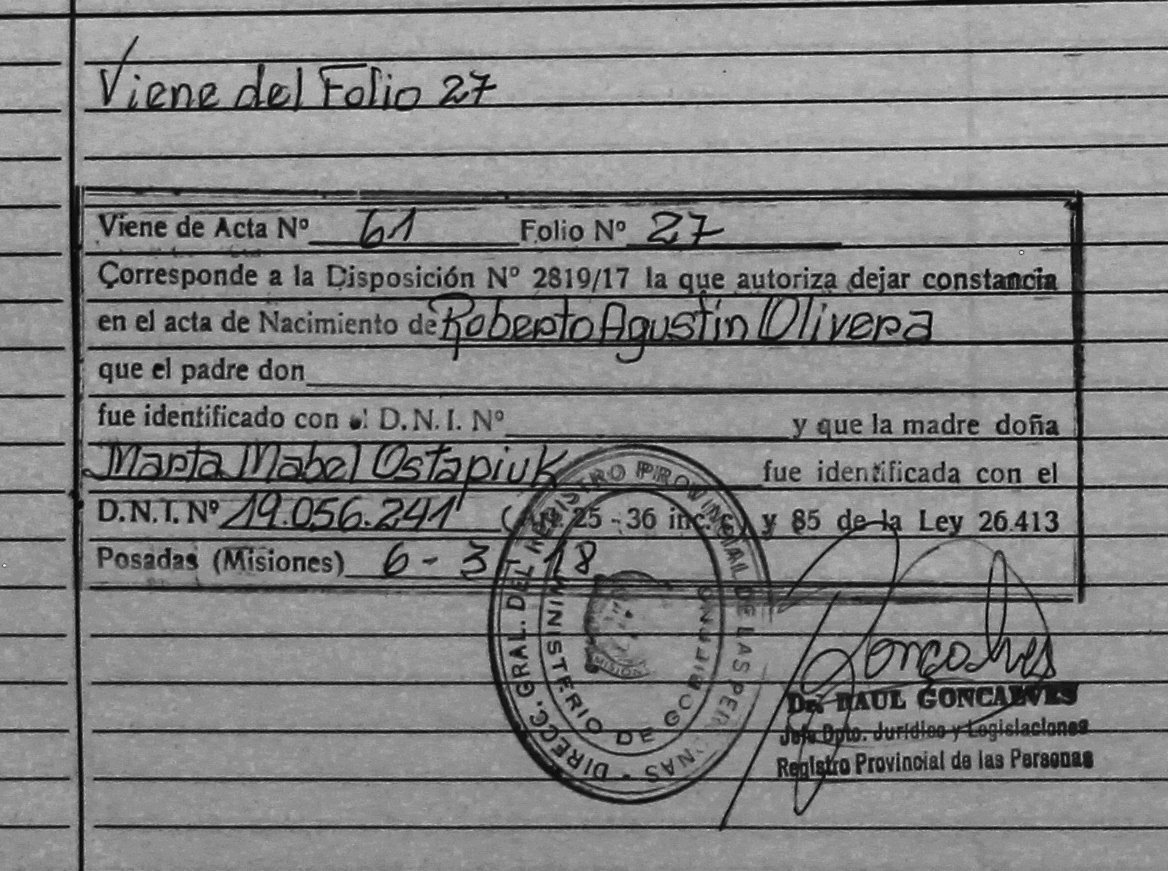 Viene del Folio 27
Viene de Acta Nº 61 Folio Nº 27
Corresponde a la Disposición Nº 2819/17 la que autoriza dejar constancia
en el acta de Nacimiento de Roberto Agustin Olivera
que el padre don
fue identificado con el D.N.I. Nº y que la madre doña
Marta Mabel Ostapiuk fue identificada con el
D.N.I. Nº 19.056.241 25 - 36 inc. y 85 de la Ley 26.413
Posadas (Misiones) 6 - 3 18
DIRECC. GRAL. DEL REGISTRO PROVINCIAL DE LAS PERSONAS
MINISTERIO DE GOBIERNO
MISIONES
Goncalves
Dr. RAUL GONCALVES
Jefe Dpto. Jurídico y Legislaciones
Registro Provincial de las Personas